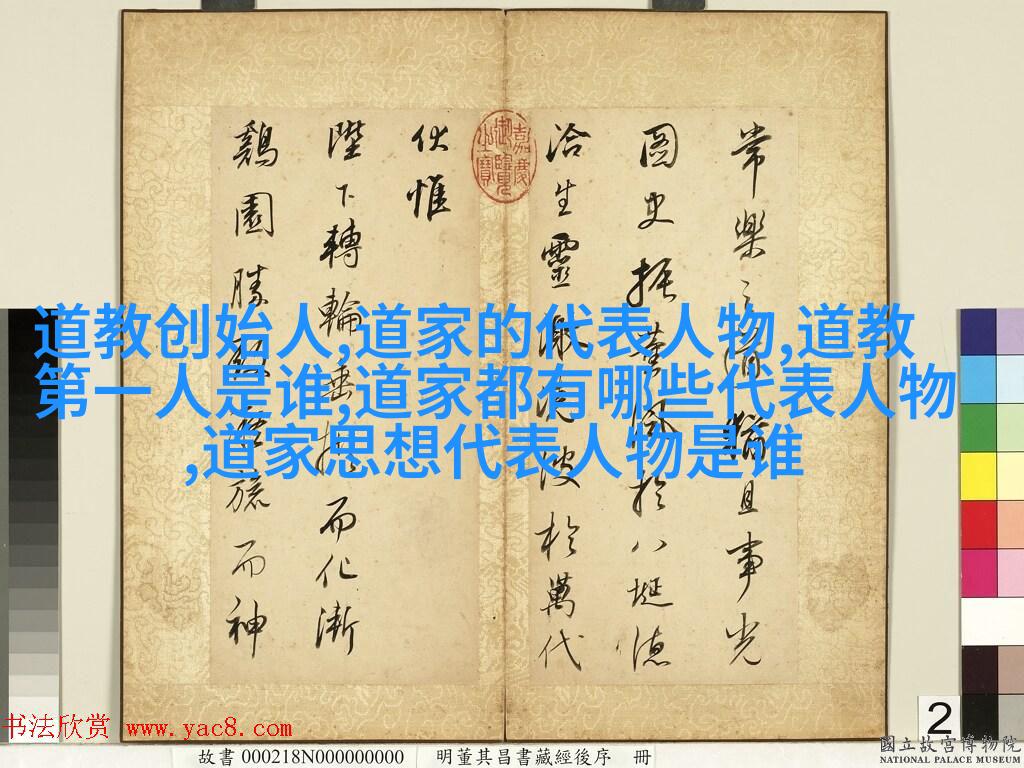 常樂之清猶且事光
圖史振葉風於八埏德
洽生靈激流波於萬代
伏惟
陛下轉輪垂拱而化漸
鷄園勝殘登禩而神
嘉慶御覽之寶
道教创始人,道家的代表人物,道教
第一人是谁,道家都有哪些代表人物
,道家思想代表人物是谁
书法欣赏 www.yac8.com
故書 000218N000000000
明董其昌書藏經後序 冊
2
國立故宮博物院
NATIONAL PALACE MUSEUM